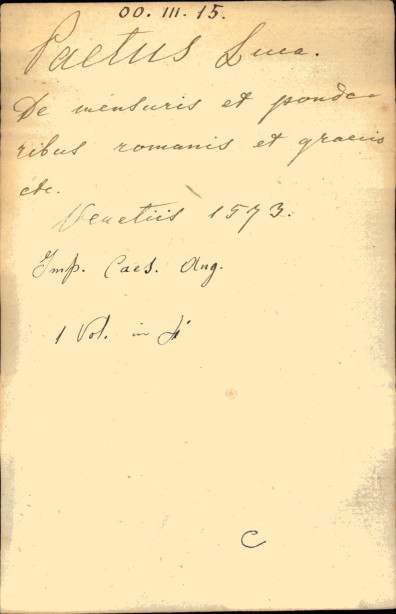 OO. III. 15.
Paetus Luca.
De mensuris et ponde-
ribus romanis et graecis
etc.
Venetiis 1573.
Imp. Caes. Aug.
1 Vol. in f°
C